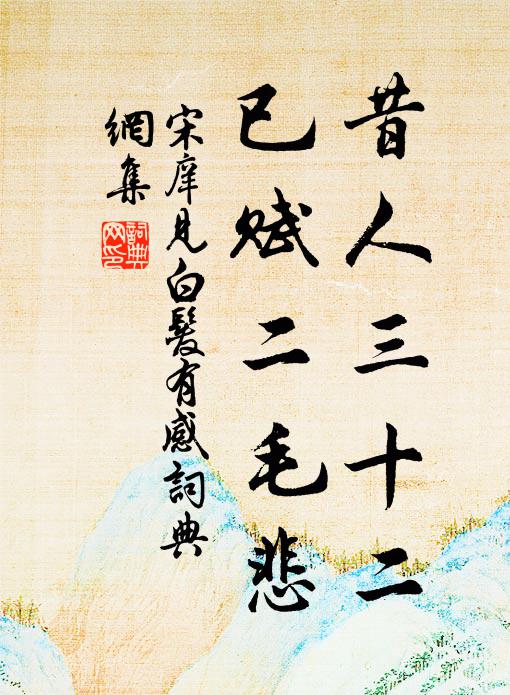 昔人三十二
已赋二毛悲
宋庠見白髮有感詞典
網集
詞典网印